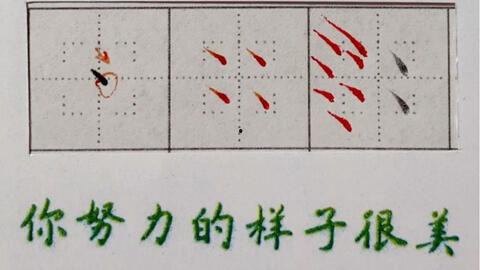 你努力的样子很美